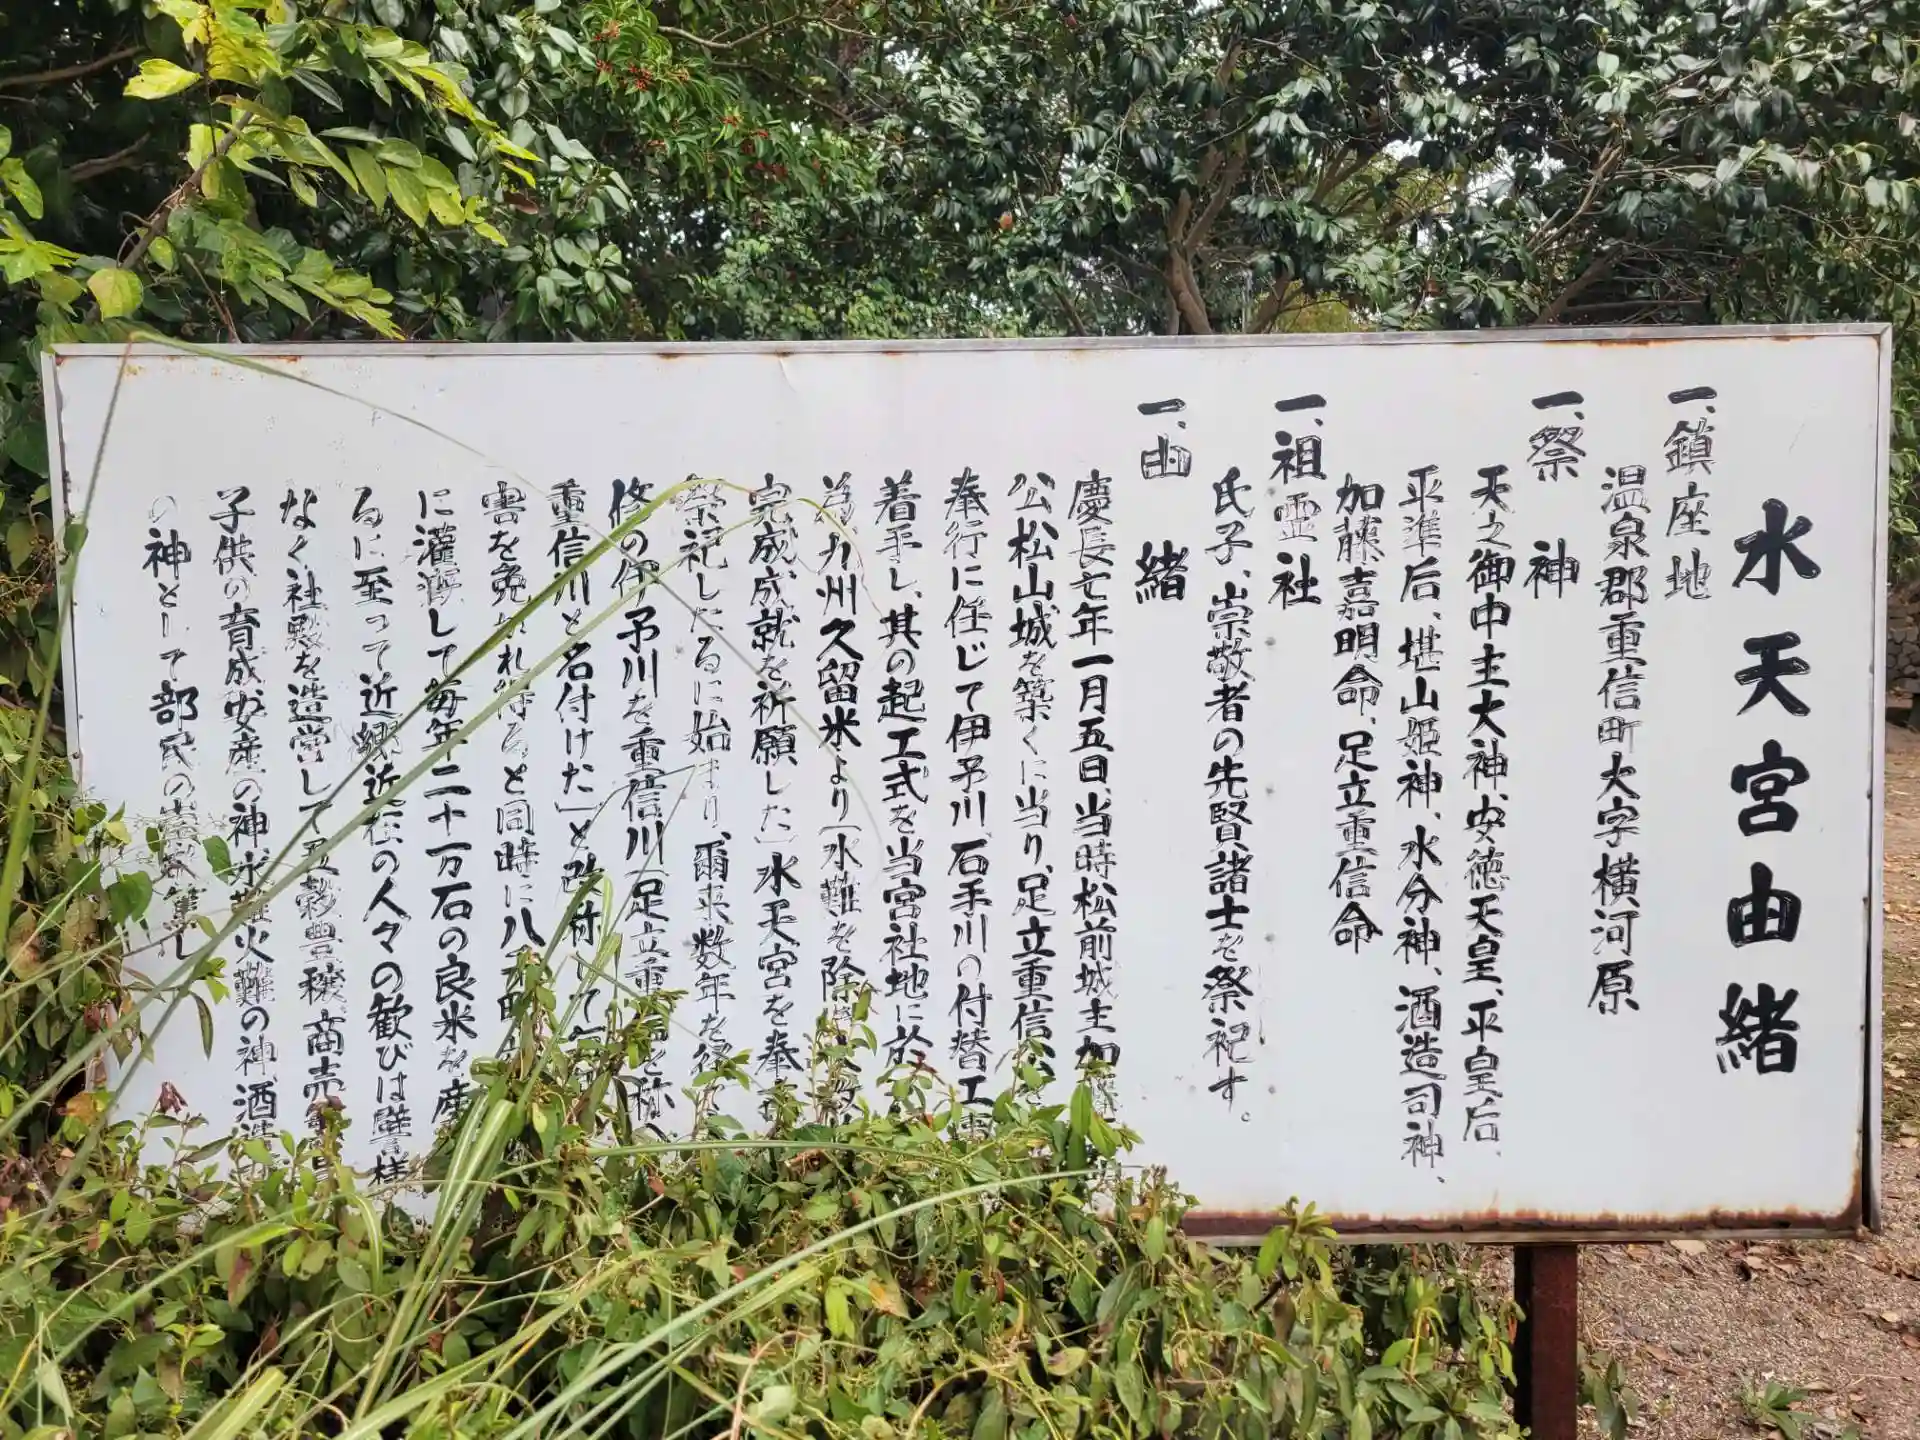 水天宮由緒
一、鎮座地
温泉郡重信町大字横河原
一、祭 神
天之御中主大神、安徳天皇、平皇后、
平準后、堪山姫神、水分神、酒造司神、
加藤嘉明命、足立重信命
一、祖霊社
氏子、崇敬者の先賢諸士を祭祀す。
一、由 緒
慶長七年一月五日、当時松前城主加
公松山城を築くに当り、足立重信
奉行に任じて伊予川、石手川の付替工事
着手し、其の起工式を当宮社地に於
為、九州久留米より「水難を除
完成成就を祈願した」水天宮を奉
祭祀したるに始まり、爾来、数年を経て
修の伊予川を重信川「足立重信を称へ
重信川と名付けた」と改称して
害を免れ得ると同時に八
に灌漑して毎年二十万石の良米を産
るに至って近郷近在の人々の歓びは譬様
なく社殿を造営して五穀豊穣、商売繁昌
子供の育成、安産の神、水難火難の神、酒造
の神として部民の崇敬を集し